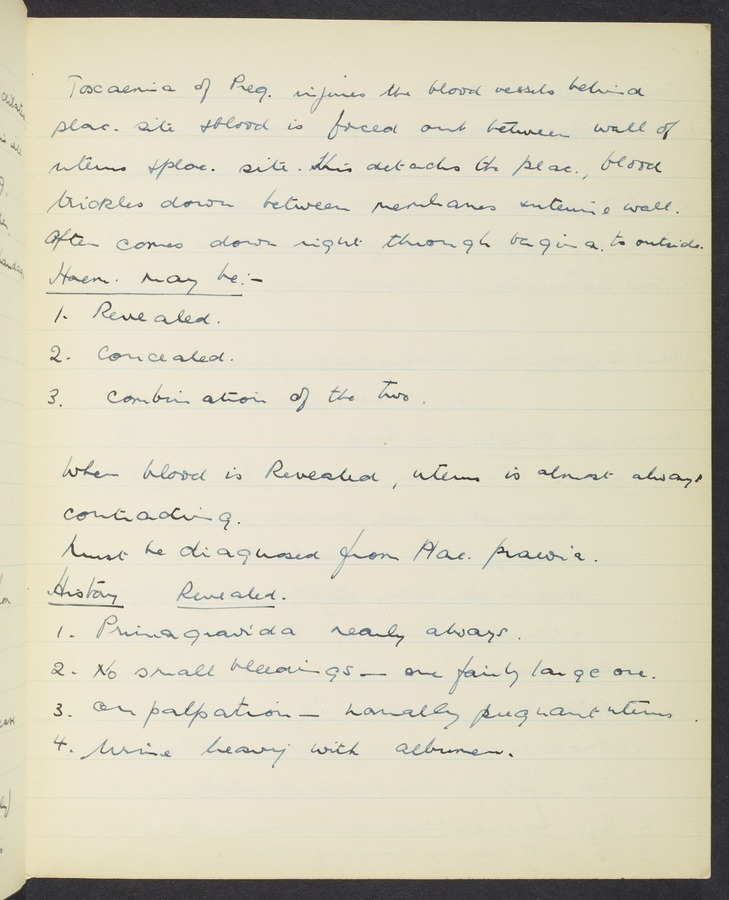 Toxaemia of Preg. injures the blood vessels behind
plac. site & blood is forced out between wall of
uterus & plac. site. This detaches the plac., blood
trickles down between membranes & uterine wall.
Often comes down right through vagina. to outside.
Haem. may be:-
1. Revealed.
2. Concealed.
3. Combination of the two.
When blood is Revealed, uterus is almost always
contracting.
Must be diagnosed from Plac. praevia.
History Revealed.
1. Primagravida nearly always.
2. No small bleedings — one fairly large one.
3. On palpation — normally pregnant uterus.
4. Urine heavy with albumen.